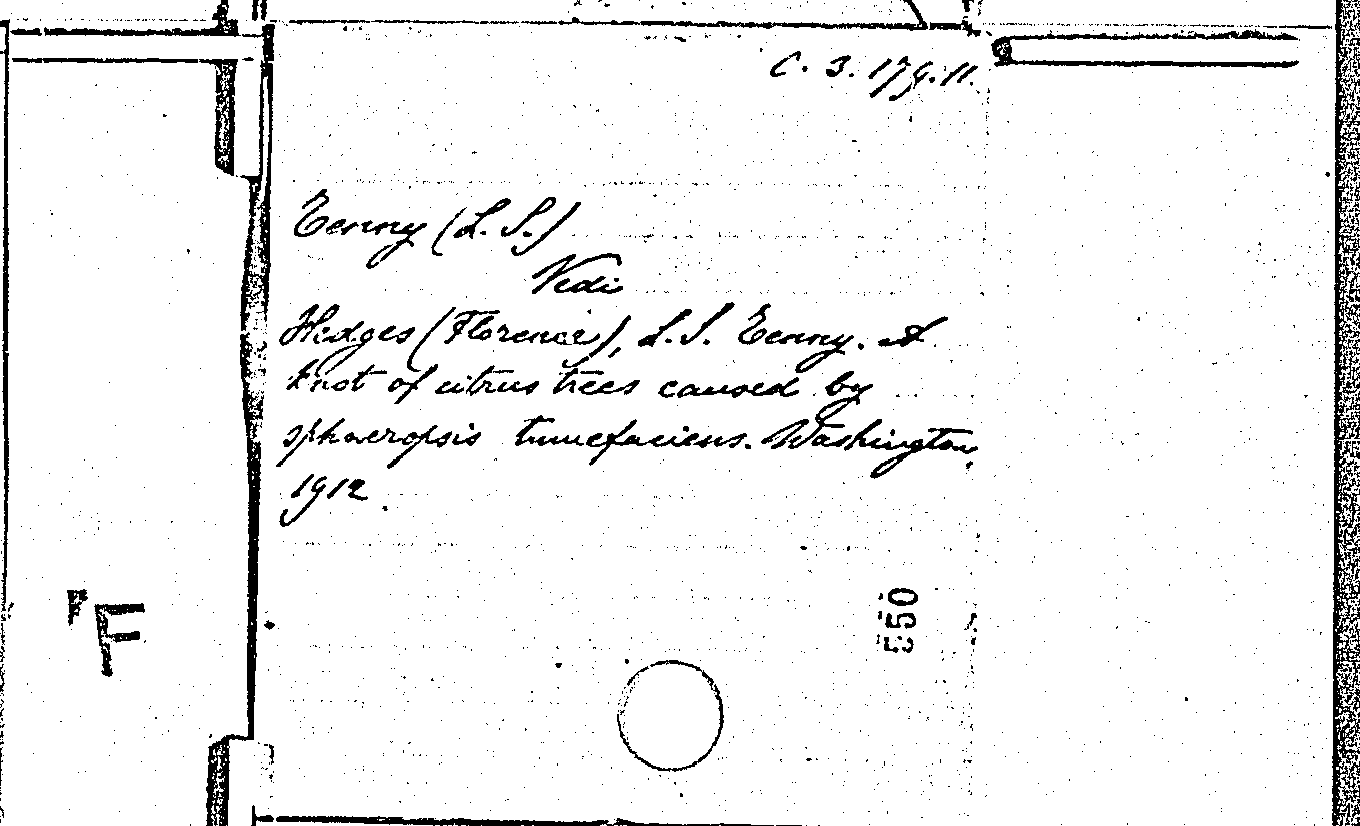 C. 3. 179.11.
Tenny (L. S.)
Vedi
Hedges (Florence), L. S. Tenny. A
knot of citrus trees caused by
sphaeropsis tumefaciens. Washington,
1912.
550
"F